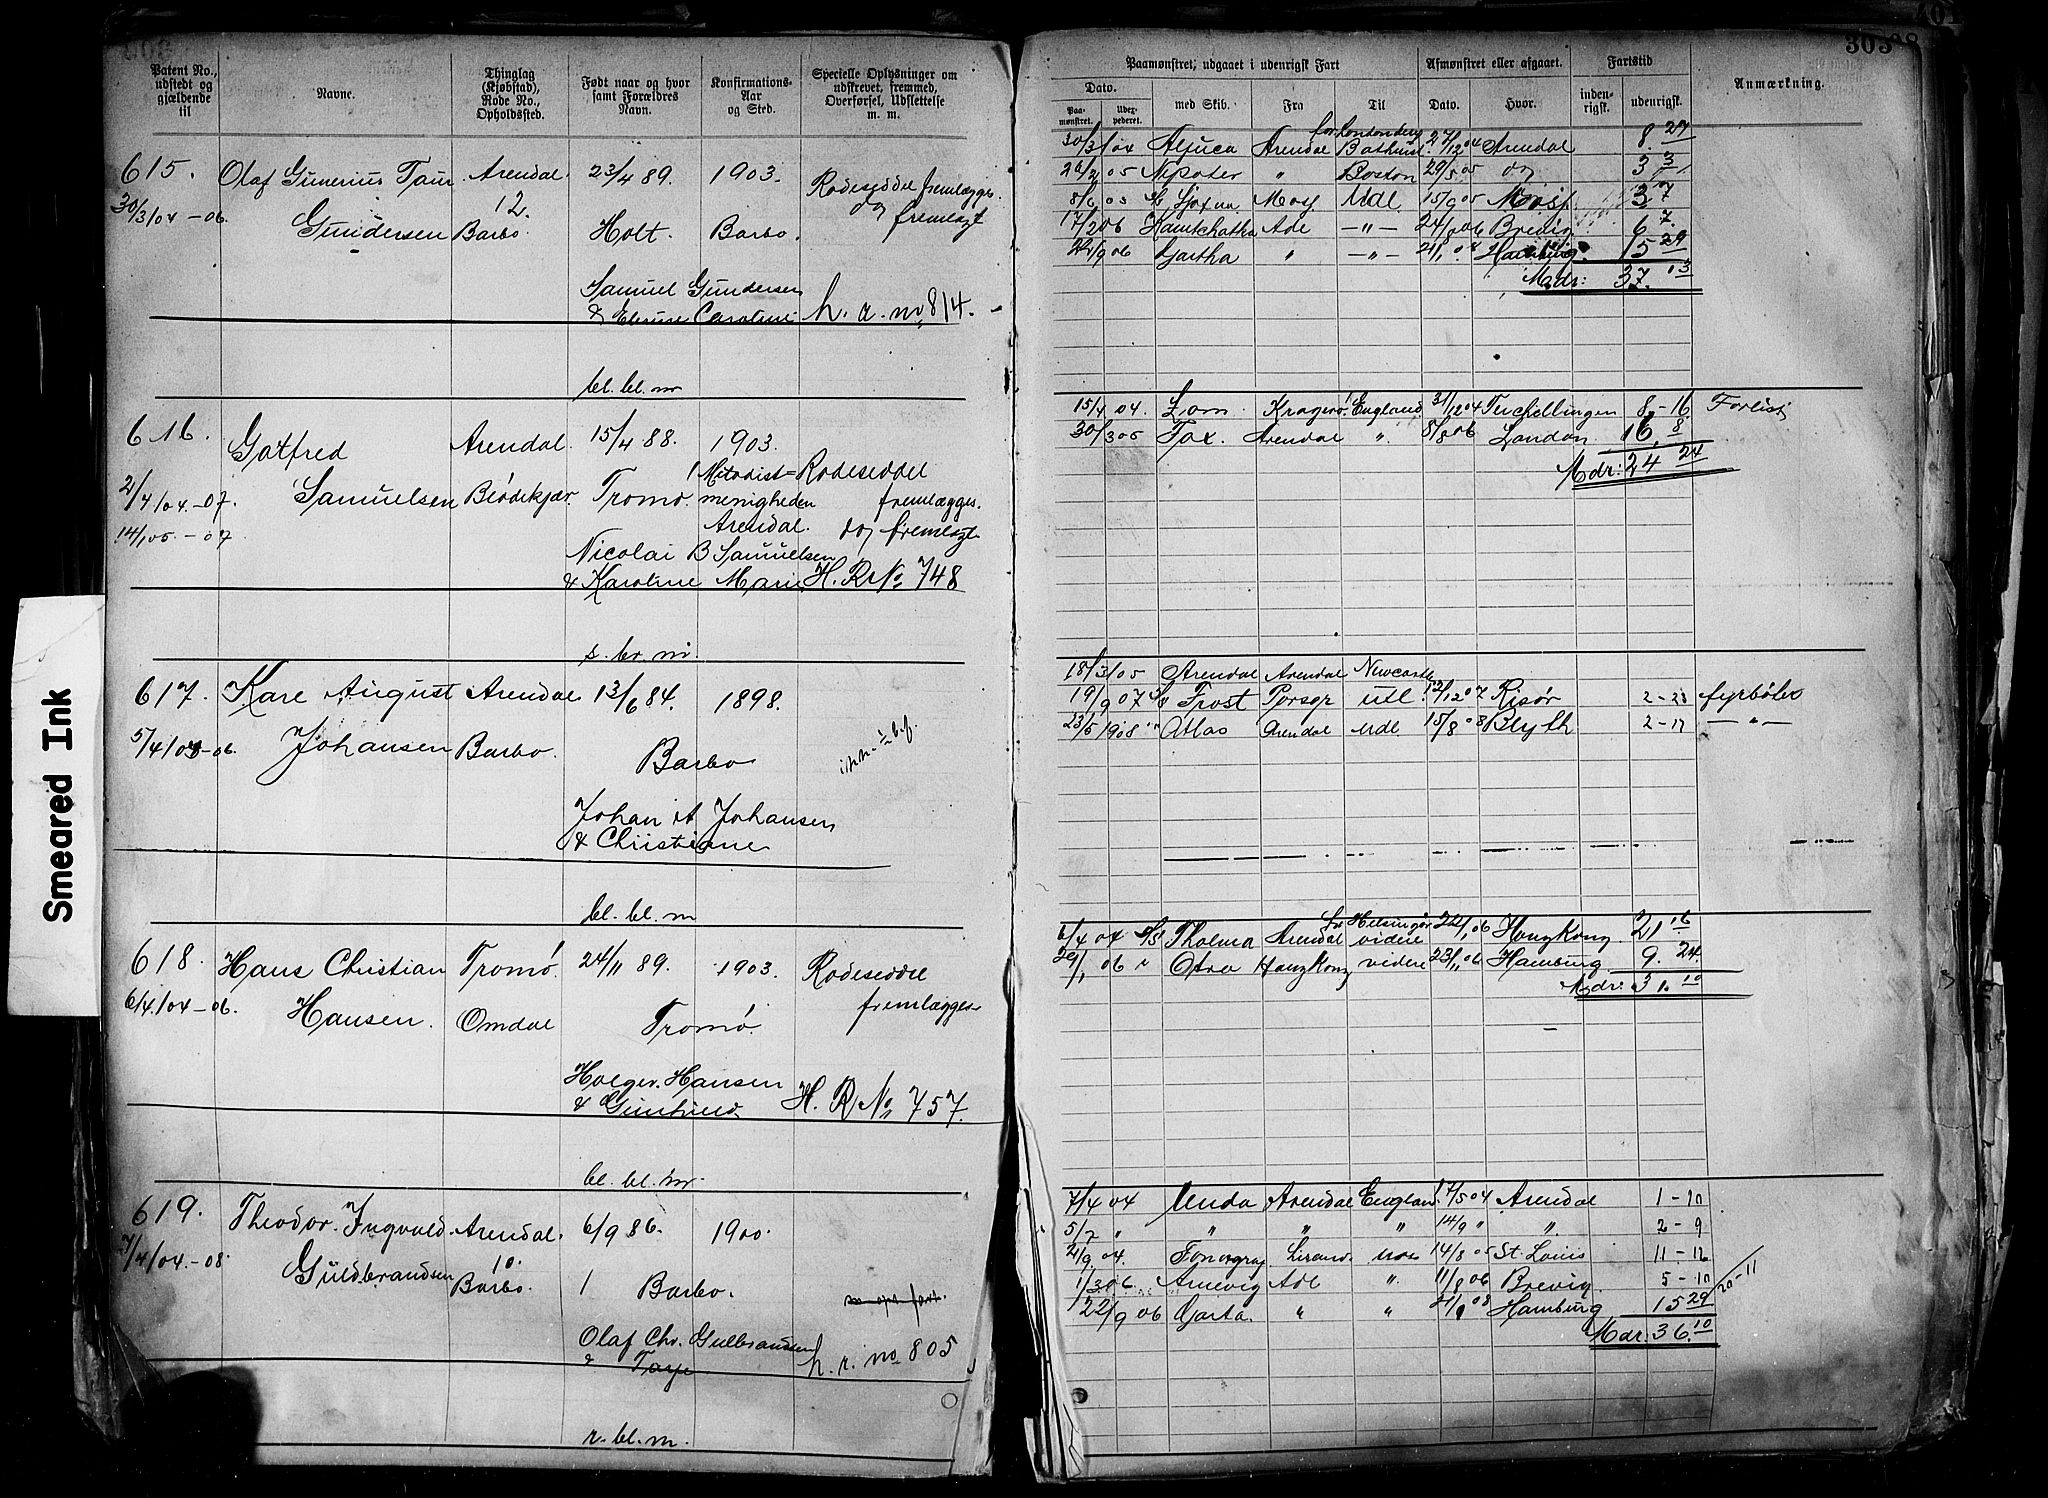 Smeared Ink
Patent No., udstedt og gjældende til
Navne.
Thinglag (Kjøbstad), Rode No., Opholdssted.
Født naar og hvor samt Forældres Navn.
Konfirmations-Aar og Sted.
Specielle Oplysninger om udskrevet, fremmed, Overførsel, Udslettelse m. m.
Paamønstret, udgaaet i udenrigsk Fart
Afmønstret eller afgaaet.
Fartstid
Anmærkning.
Dato.
Paamønstret.
Udexpederet.
med Skib.
Fra
Til
Dato.
Hvor.
indenrigsk.
udenrigsk.
615. Olaf Gunerius Taur Arendal 23/4 89. 1903. Rodeseddel fremlægges
30/3/04-06. Gundersen 12. Barbo Holt. Barbo. do fremlagt
Samuel Gundersen
& Caroline. h. a. no 814.
bl. bl. m
30/3/04 Aljuca Arendal Bathurst 12 04 Arendal 8. 27
05 Nepoter " Boston 29/5 05 do 3 3
8/6 05 Moss Udl 15/9 05 Moss 3 7
17/2 06 Kamtchatka Ade -"- 24/8 06 Brevig 6 7.
22/9 06 Gartha " -"- 21/1 08 Hamburg 15 29
Mdr: 37. 13
616. Gotfred Arendal 15/4 88. 1903.
2/4/04.-07. Samuelsen Tromø. Metodist= menigheden Arendal. Rodeseddel fremlægges.
14/1 05-07 do fremlagt
Nicolai B Samuelsen
& Karoline Marie H. R No 748
s. br. m.
15/4 04. Lom. Kragerø England 31/12 04 Terchellingen 8-16 Forlist
30/3 05 Fax. Arendal ". 8/8 06 London 16. 8
Mdr: 24 24
617. Kare August Arendal 13/6 84. 1898.
5/4/03-06. Johansen Barbo. Barbo
Johan A Johansen
& Christiane
bl. bl. m
18/3/05 Arendal Arendal Newcastle
19/9 07 Frost Porsgr utl. 12/12 07 Risør 2-23 fyrbøter
23/5 1908 " Atlas Arendal udl 15/8 08 Blyth 2-17 -"-
618. Hans Christian Tromø. 24/11 89. 1903. Rodeseddel
6/4/04-06. Hansen. Omdal Tromø. fremlægges
Holger Hansen
& H. R No 757.
bl. bl. m.
6/4 04 S/S Tholma Arendal Helsingør videre 22/1 06 HongKong 21 16
29/1 06 " Otra HongKong videre 23/11 06 Hamburg 9. 24
Mdr: 31. 10
619. Theodor Ingvald Arendal. 6/9 86. 1900.
7/4/04.-08. Guldbrandsen 10. Barbo. Barbo.
Olaf Chr. Gulbrandsen
& Taye h. r. no 805
r. bl. m.
7/4 04 Unda Arendal England 17/5 04 Arendal 1-10
5/7 " " " " 14/9 " ". 2-9
21/9 04. 14/8 05 St. Louis 11-16
1/3 06. Arnevig Adl ". 11/8 06 Brevig. 5-10 20-11
22/9 06 Garta. " " 21/1 08 Hamburg 15 29
Mdr: 36. 10